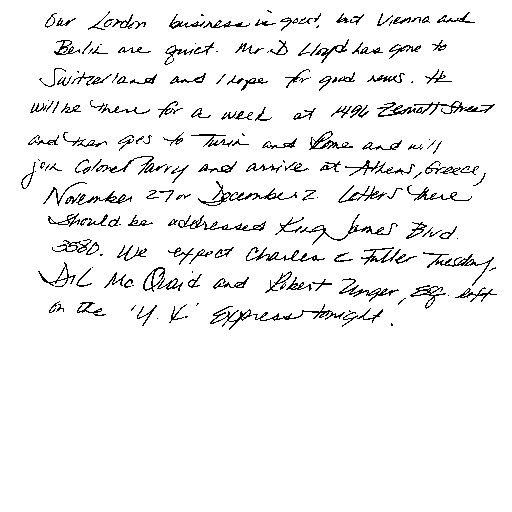 Our London business is good, but Vienna and
Berlin are quiet. Mr D Lloyd has gone to
Switzerland and I hope for good news. He
will be there for a week at 1496 Zermatt Street
and then goes to Turin and Rome and will
join Colonel Parry and arrive at Athens, Greece,
November 27 or December 2. Letters there
should be addressed King James Blvd.
3580. We expect Charles E Fuller Tuesday.
Dr L Mc Quaid and Robert Unger, Esq. left
on the 'Y. X.' Express tonight.